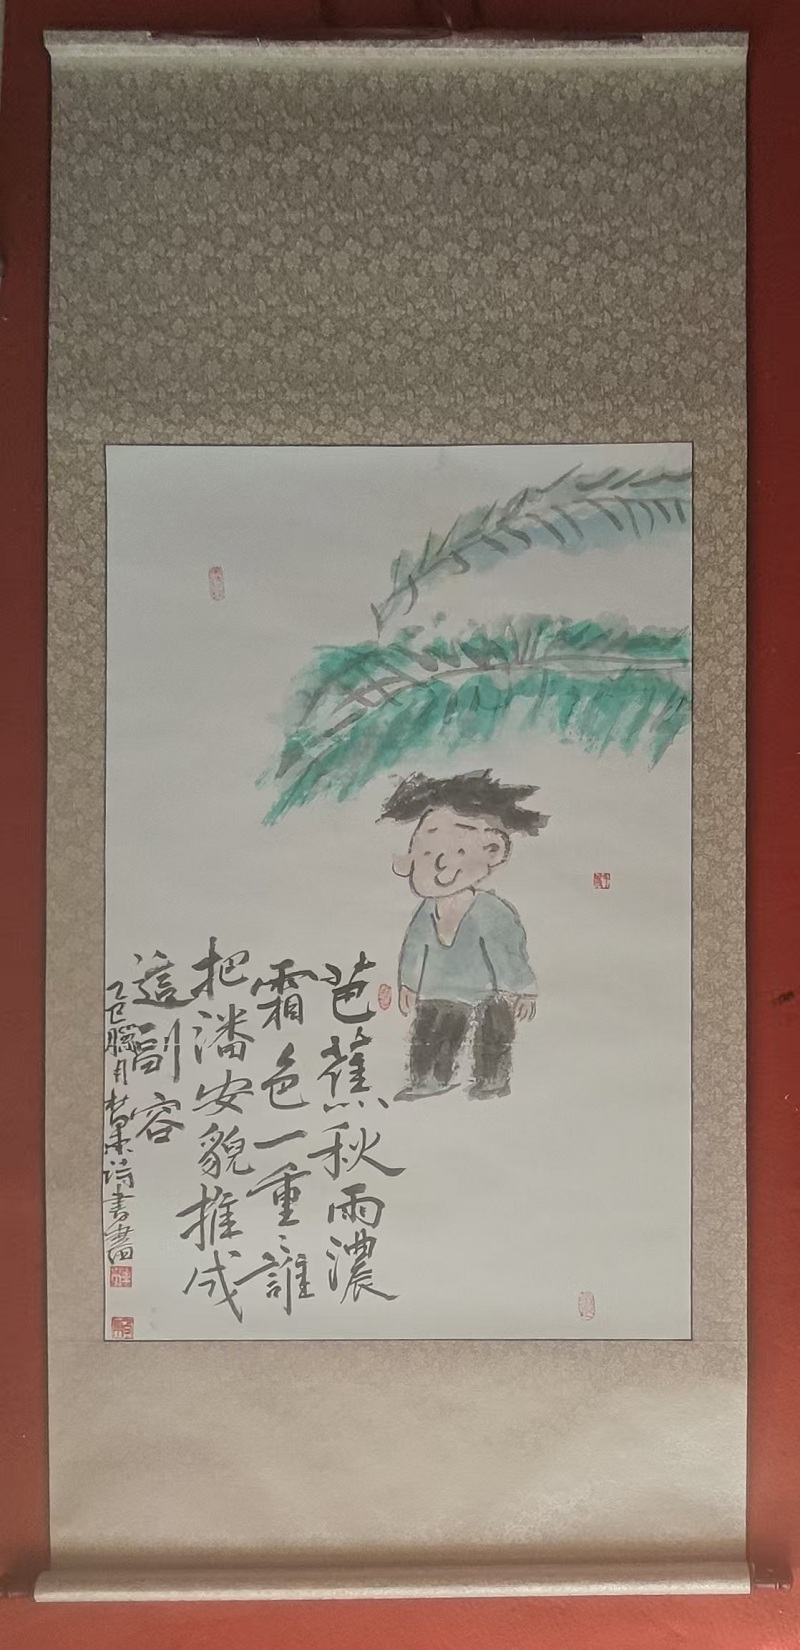 芭蕉秋雨濃
霜色一重重誰
把潘安貌摧成
這副容
乙巳臘月林墨詩書畫